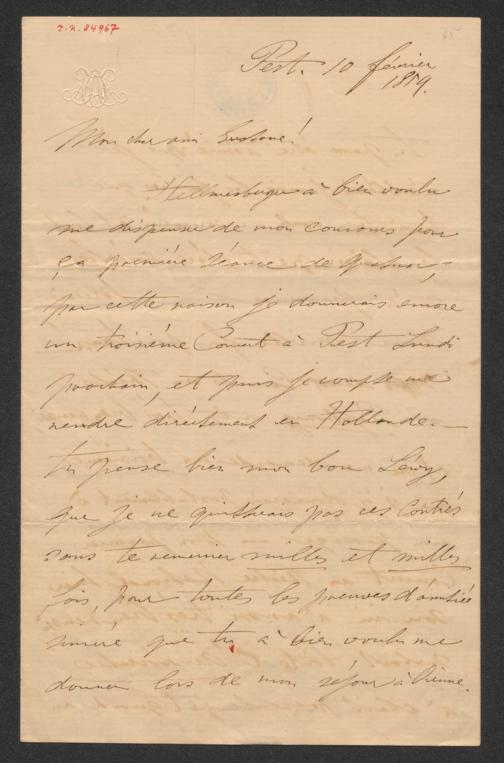 I.N. 84967
Pest. 10 février
1859.
Mon cher ami Gustave!
Hellmesberger à bien voulu
me dispense de mon concours pour
ça première Séance de Quatuor,
par cette raison je donnerais encore
un troisiéme Concert à Pest Lundi
prochain, et puis je compte me
rendre diréctement en Hollande. —
tu pense bien mon bon Lévy,
que je ne quitterais pas ces Contrés
sans te remercier milles et milles
fois, pour toutes les preuves d'amitié
sincére que tu à bien voulu me
donner lors de mon séjour à Vienne.